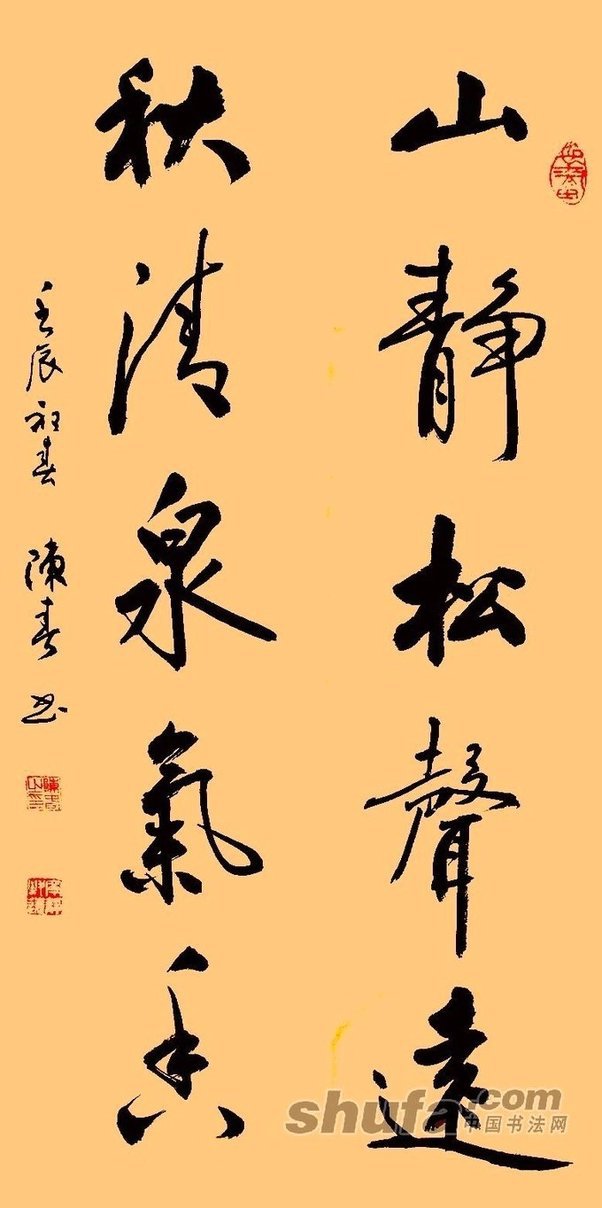 山靜松聲遠
秋清泉氣香
壬辰初春 陳春書
shufa.com
中国书法网